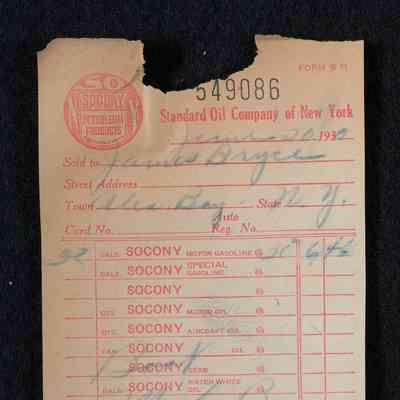 FORM S 11
SOCONY
PETROLEUM
PRODUCTS
549086
Standard Oil Company of New York
June 20 1930
Sold to James Bryce
Street Address
Town Alex Bay State N. Y.
Card No. Auto Reg. No.
GALS. SOCONY MOTOR GASOLINE @
GALS. SOCONY SPECIAL GASOLINE @
SOCONY @
QTS. SOCONY MOTOR OIL @
QTS. SOCONY AIRCRAFT OIL @
CAN SOCONY OIL @
SOCONY GEAR @
GALS. SOCONY WATER WHITE OIL @